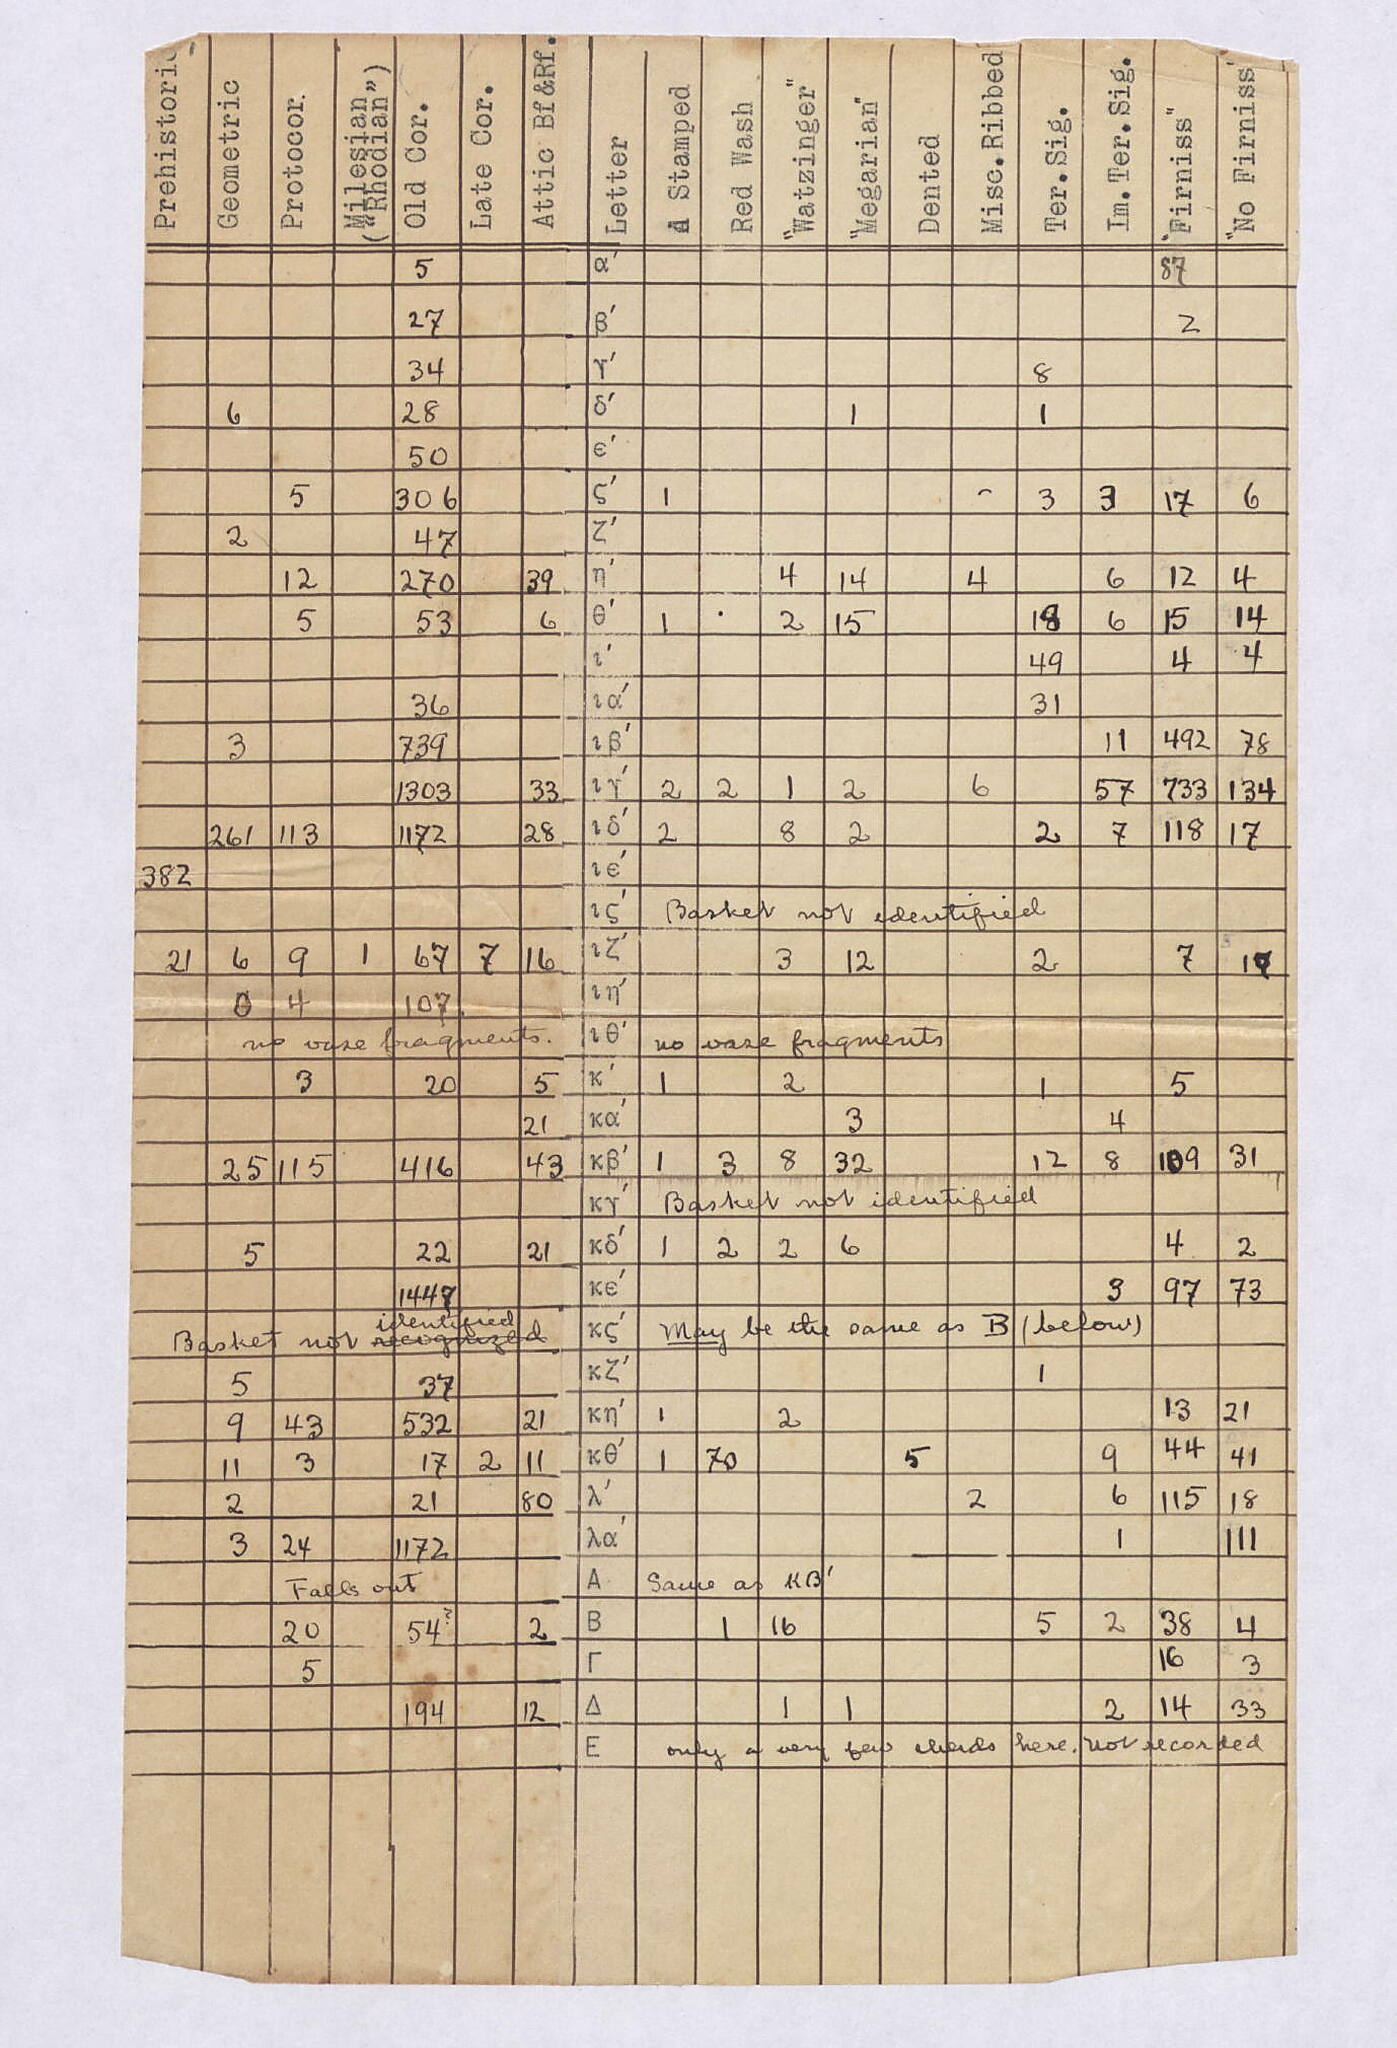 Prehistoric | Geometric | Protocor. | Milesian ("Rhodian") | Old Cor. | Late Cor. | Attic Bf&Rf. | Letter | A Stamped | Red Wash | "Watzinger" | "Megarian" | Dented | Misc.Ribbed | Ter.Sig. | Im.Ter.Sig. | "Firniss" | "No Firniss"
5 α' 87
27 β' 2
34 γ' 8
6 28 δ' 1 1
50 ε'
5 306 ς' 1 3 3 17 6
2 47 ζ'
12 270 39 η' 4 14 4 6 12 4
5 53 6 θ' 1 2 15 18 6 15 14
ι' 49 4 4
36 ια' 31
3 739 ιβ' 11 492 78
1303 33 ιγ' 2 2 1 2 6 57 733 134
261 113 1172 28 ιδ' 2 8 2 2 7 118 17
382 ιε'
ις' Basket not identified
21 6 9 1 67 7 16 ιζ' 3 12 2 7
4 107 ιη'
no vase fragments. ιθ' no vase fragments
3 20 5 κ' 1 2 1 5
21 κα' 3 4
25 115 416 43 κβ' 1 3 8 32 12 8 109 31
κγ' Basket not identified
5 22 21 κδ' 1 2 2 6 4 2
1447 κε' 3 97 73
Basket not recognized identified κς' May be the same as B (below)
5 37 κζ' 1
9 43 532 21 κη' 1 2 13 21
11 3 17 2 11 κθ' 1 70 5 9 44 41
2 21 80 λ' 2 6 115 18
3 24 1172 λα' 1 111
Falls out A Same as κβ'
20 54? 2 B 1 16 5 2 38 4
5 Γ 16 3
194 12 Δ 1 1 2 14 33
E only a very few sherds here. Not recorded